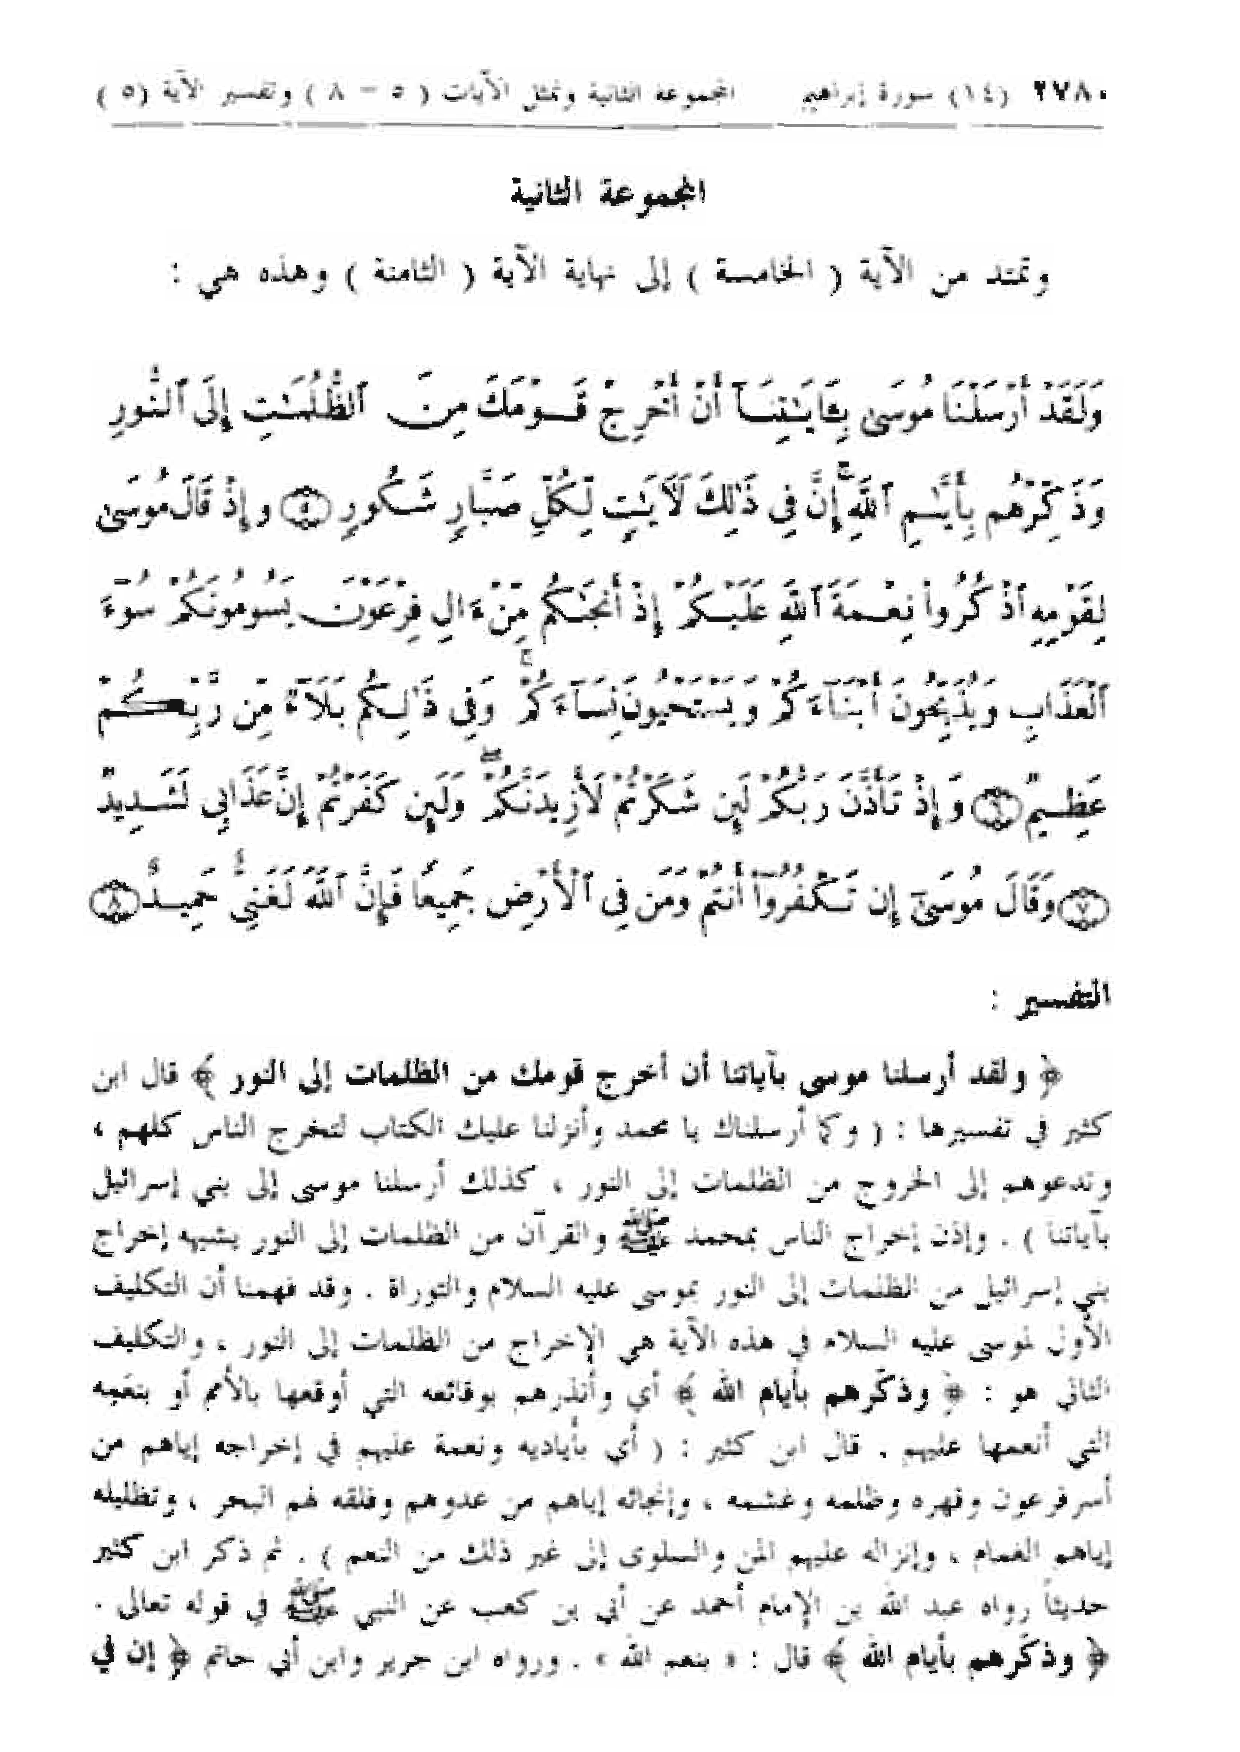 ٢٧٨٠ (١٤) سورة إبراهيم المجموعة الثانية وتمثل الآيات ( ٥ - ٨ ) وتفسير الآية (٥ )
المجموعة الثانية
وتمتد من الآية ( الخامسة ) إلى نهاية الآية ( الثامنة ) وهذه هي :
وَلَقَدْ أَرْسَلْنَا مُوسَىٰ بِـَٔايَـٰتِنَآ أَنْ أَخْرِجْ قَوْمَكَ مِنَ ٱلظُّلُمَـٰتِ إِلَى ٱلنُّورِ
وَذَكِّرْهُم بِأَيَّـٰمِ ٱللَّهِ ۚ إِنَّ فِى ذَٰلِكَ لَـَٔايَـٰتٍ لِّكُلِّ صَبَّارٍ شَكُورٍ ٥ وَإِذْ قَالَ مُوسَىٰ
لِقَوْمِهِ ٱذْكُرُوا۟ نِعْمَةَ ٱللَّهِ عَلَيْكُمْ إِذْ أَنجَىٰكُم مِّنْ ءَالِ فِرْعَوْنَ يَسُومُونَكُمْ سُوٓءَ
ٱلْعَذَابِ وَيُذَبِّحُونَ أَبْنَآءَكُمْ وَيَسْتَحْيُونَ نِسَآءَكُمْ ۚ وَفِى ذَٰلِكُم بَلَآءٌ مِّن رَّبِّكُمْ
عَظِيمٌ ٦ وَإِذْ تَأَذَّنَ رَبُّكُمْ لَئِن شَكَرْتُمْ لَأَزِيدَنَّكُمْ ۖ وَلَئِن كَفَرْتُمْ إِنَّ عَذَابِى لَشَدِيدٌ
٧ وَقَالَ مُوسَىٰٓ إِن تَكْفُرُوٓا۟ أَنتُمْ وَمَن فِى ٱلْأَرْضِ جَمِيعًا فَإِنَّ ٱللَّهَ لَغَنِىٌّ حَمِيدٌ ٨
التفسير :
﴿ ولقد أرسلنا موسى بآياتنا أن أخرج قومك من الظلمات إلى النور ﴾ قال ابن
كثير في تفسيرها : ( وكما أرسلناك يا محمد وأنزلنا عليك الكتاب لتخرج الناس كلهم ،
وتدعوهم إلى الخروج من الظلمات إلى النور ، كذلك أرسلنا موسى إلى بني إسرائيل
بآياتنا ) . وإذن إخراج الناس بمحمد ﷺ والقرآن من الظلمات إلى النور يشبهه إخراج
بني إسرائيل من الظلمات إلى النور بموسى عليه السلام والتوراة . وقد فهمنا أن التكليف
الأول لموسى عليه السلام في هذه الآية هي الإخراج من الظلمات إلى النور ، والتكليف
الثاني هو : ﴿ وذكّرهم بأيام الله ﴾ أي وأنذرهم بوقائعه التي أوقعها بالأمم أو بنعَمِه
التي أنعمها عليهم . قال ابن كثير : ( أي بأياديه ونعمة عليهم في إخراجه إياهم من
أسر فرعون وقهره وظلمه وغشمه ، وإنجائه إياهم من عدوهم وفلقه لهم البحر ، وتظليله
إياهم الغمام ، وإنزاله عليهم المن والسلوى إلى غير ذلك من النعم ) . ثم ذكر ابن كثير
حديثاً رواه عبد الله بن الإمام أحمد عن أبي بن كعب عن النبي ﷺ في قوله تعالى .
﴿ وذكّرهم بأيام الله ﴾ قال : « بنعم الله » . ورواه ابن جرير وابن أبي حاتم ﴿ إن في